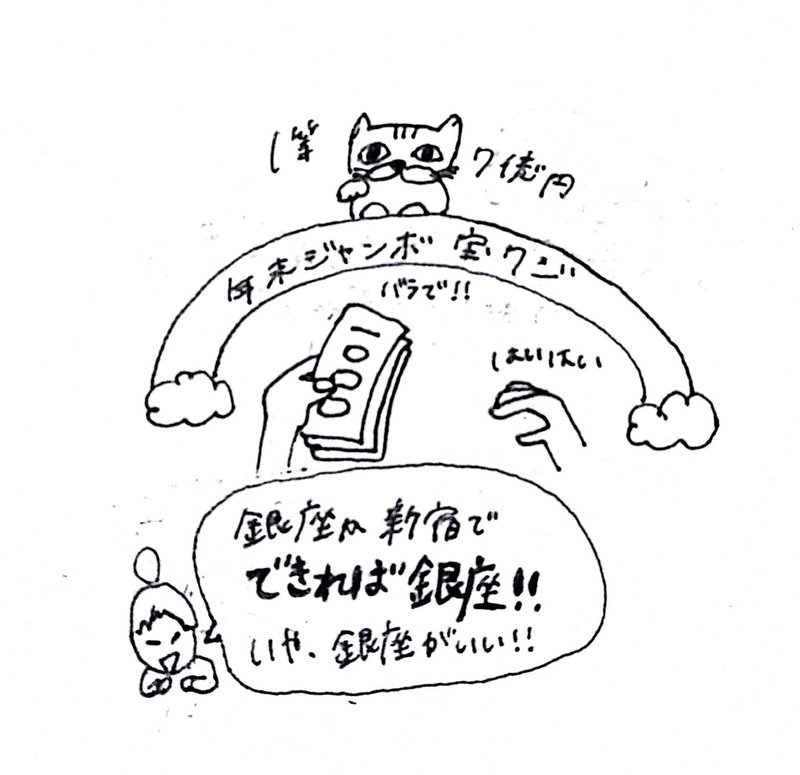 1等
7億円
年末ジャンボ宝クジ
バラで!!
一〇〇〇〇
はいはい
銀座か新宿で
できれば銀座!!
いや、銀座がいい!!